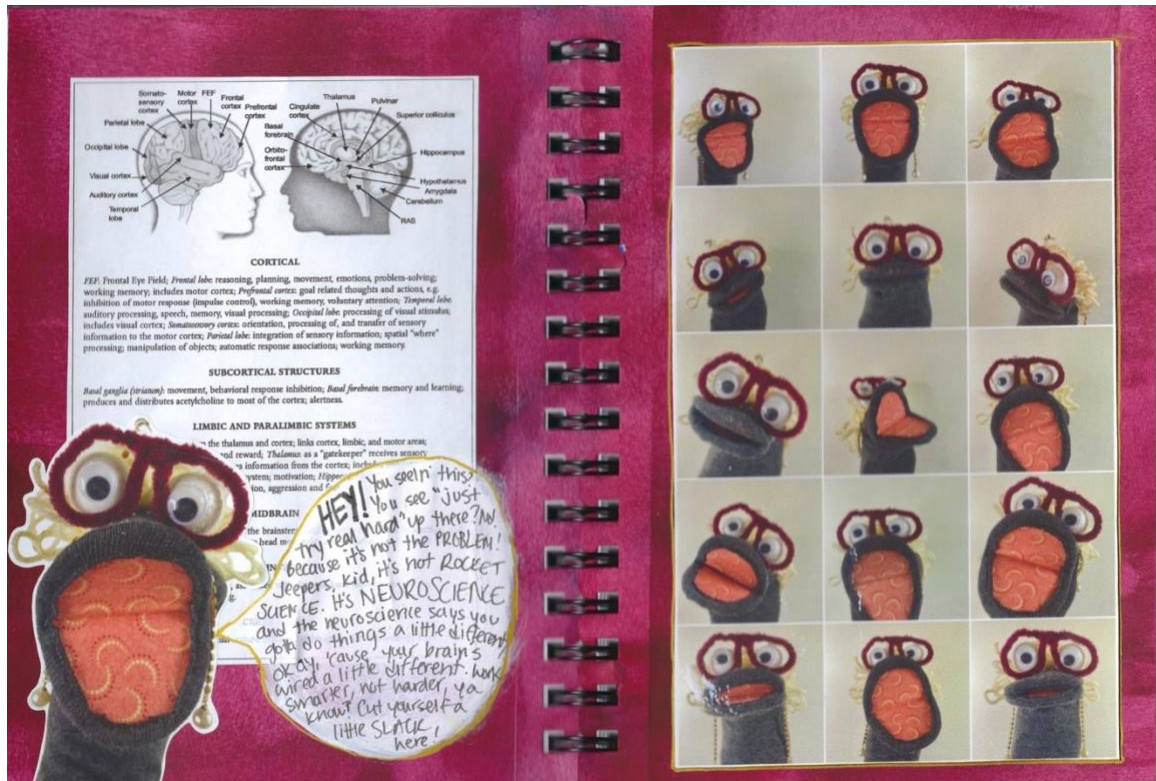 Somato-
sensory
cortex
Motor
cortex
FEF
Frontal
cortex
Prefrontal
cortex
Parietal lobe
Occipital lobe
Visual cortex
Auditory cortex
Temporal
lobe
Cingulate
cortex
Thalamus
Pulvinar
Superior colliculus
Basal
forebrain
Orbito-
frontal
cortex
Hippocampus
Hypothalamus
Amygdala
Cerebellum
RAS
CORTICAL
FEF: Frontal Eye Field; Frontal lobe: reasoning, planning, movement, emotions, problem-solving;
working memory; includes motor cortex; Prefrontal cortex: goal related thoughts and actions, e.g.
inhibition of motor response (impulse control), working memory, voluntary attention; Temporal lobe:
auditory processing, speech, memory, visual processing; Occipital lobe: processing of visual stimulus;
includes visual cortex; Somatosensory cortex: orientation, processing of, and transfer of sensory
information to the motor cortex; Parietal lobe: integration of sensory information; spatial "where"
processing; manipulation of objects; automatic response associations; working memory.
SUBCORTICAL STRUCTURES
Basal ganglia (striatum): movement, behavioral response inhibition; Basal forebrain: memory and learning;
produces and distributes acetylcholine to most of the cortex; alertness.
LIMBIC AND PARALIMBIC SYSTEMS
the thalamus and cortex; links cortex, limbic, and motor areas;
and reward; Thalamus as a "gatekeeper" receives sensory
information from the cortex;
motivation;
aggression and
MIDBRAIN
the
head
HEY! You seein' this?
You see "just
try real hard" up there? No!
because it's not the PROBLEM!
Jeepers, kid, it's not ROCKET
SCIENCE. it's NEUROSCIENCE
and the neuroscience says you
gotta do things a little different
okay, 'cause your brain's
wired a little different. work
smarter, not harder, ya
know? Cut yourself a
little SLACK
here!